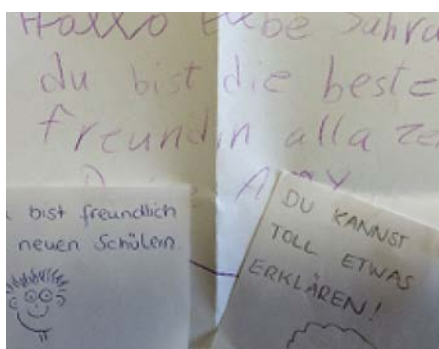 Hallo liebe Sahra
du bist die beste
freundin alla ze
Amy
bist freundlich
neuen Schülern.
DU KANNST
TOLL ETWAS
ERKLÄREN!